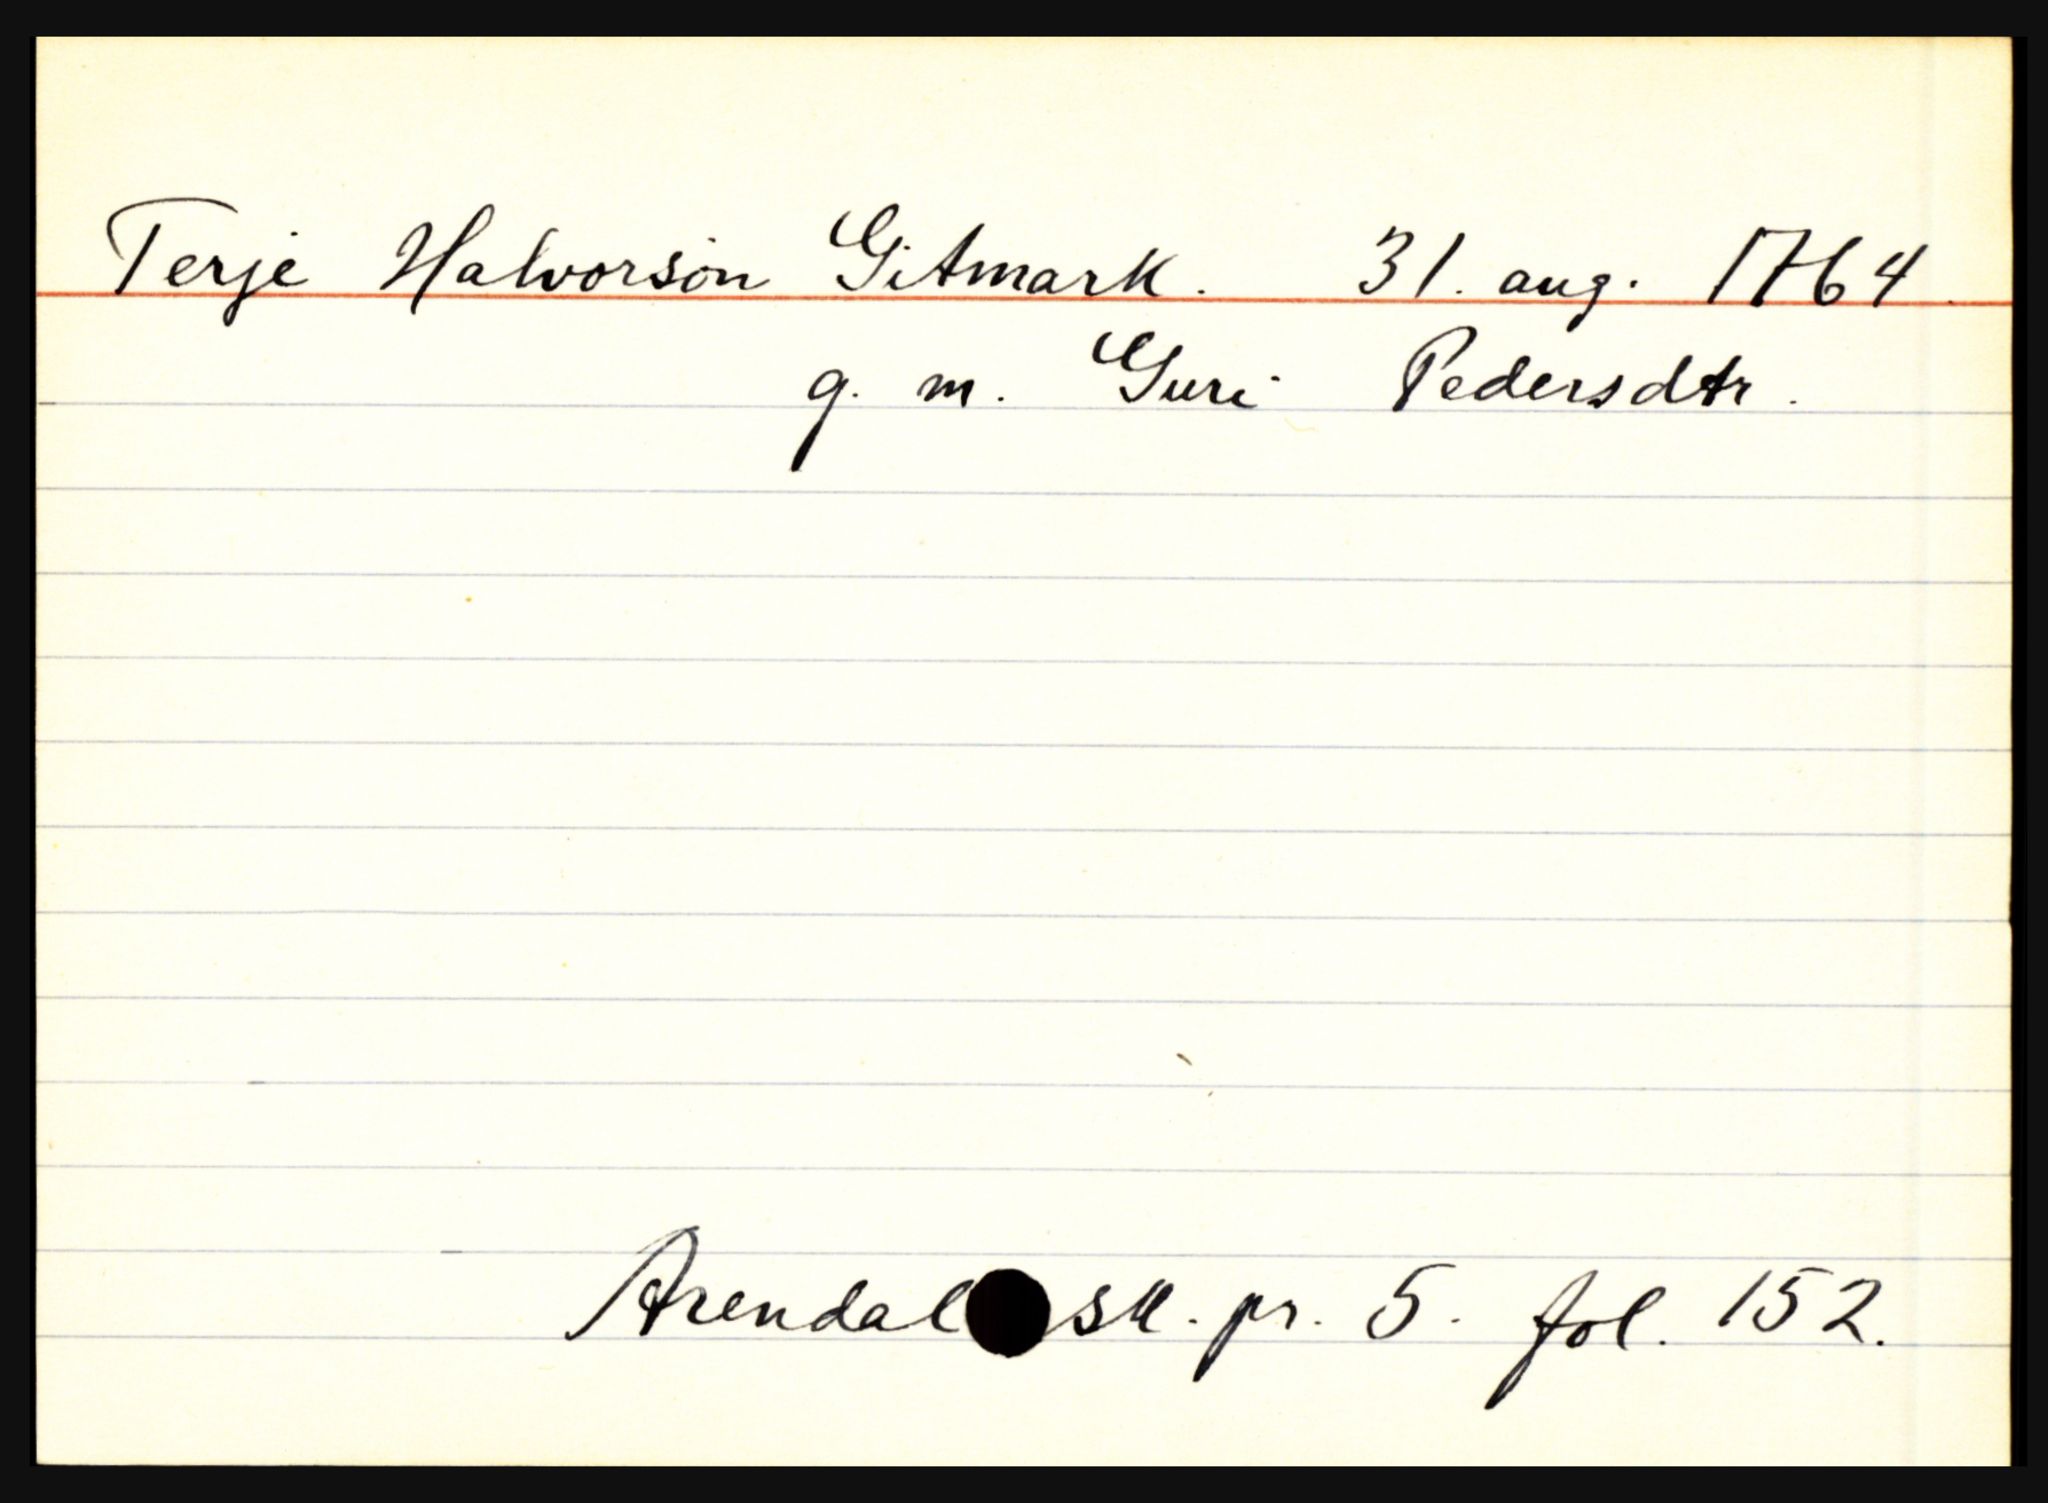 Terje Halvorson Gitmark. 31. aug. 1764.
g. m. Guri Pedersdtr.
Arendal sk. pr. 5. fol. 152.